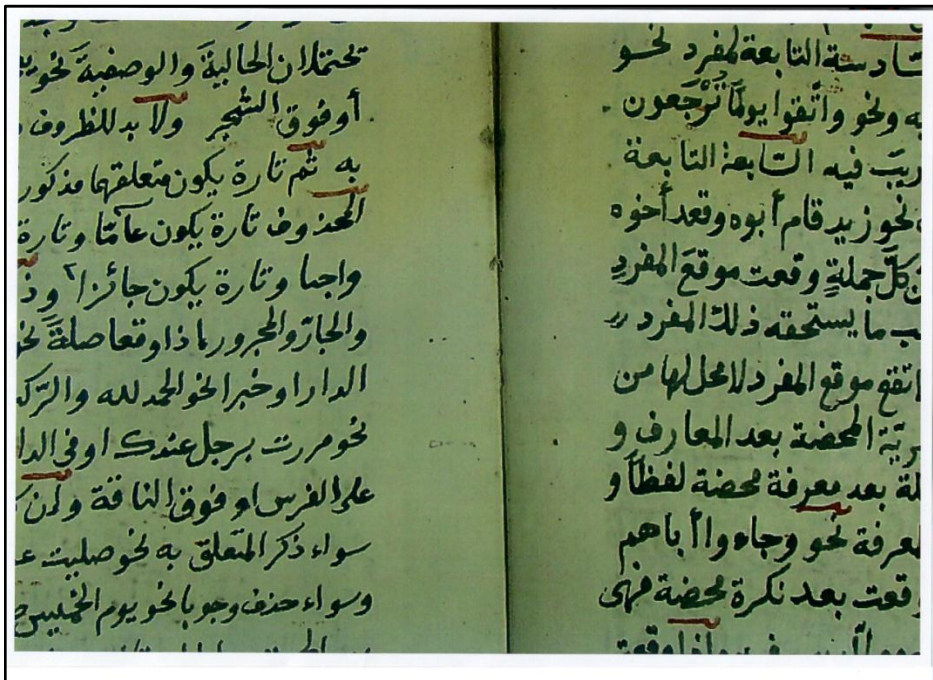 السادسة التابعة لمفرد نحو
به ونحو واتّقوا يومًا تُرْجَعون
ريبَ فيه السّابعة التابعة
نحو زيد قام أبوه وقعد أخوه
كلَّ جملةٍ وقعت موقعَ المفردِ
ما يستحقه ذلك المفرد
تقع موقع المفرد لا محل لها من
المحضة بعد المعارف و
بعد معرفة محضة لفظاً و
معرفة نحو وجاءوا أباهم
وقعت بعد نكرة محضة فهي
تحتملان الحالية والوصفية نحو
أو فوق الشجر ولا بد للظروف
به ثم تارة يكون متعلقهما مذكور
المحذوف تارة يكون عامّا وتارة
واجبا وتارة يكون جائزا
والجارّ والمجرور اذا وقعا صلةً
الدار او خبرا نحو الحمد لله والرّكب
نحو مررت برجل عندك او في الدا
على الفرس او فوق الناقة وان
سواء ذكر المتعلّق به نحو صليت
وسواء حذف وجوبا نحو يوم الخميس